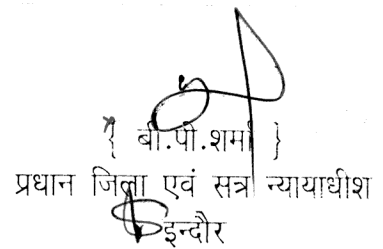 { बी.पी.शर्मा }
प्रधान जिला एवं सत्र न्यायाधीश
इन्दौर